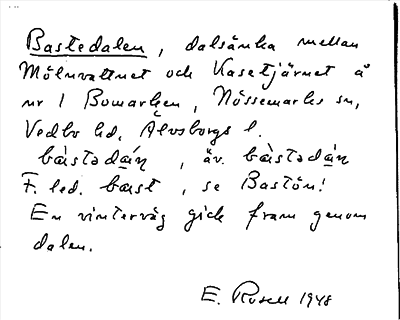 Bastedalen, dalsänka mellan
Mölnvattnet och Kasetjärnet å
nr 1 Bowarken, Nössemarks sn,
Vedbo hd, Älvsborgs l.
bàstədáṇ, äv. bàstədáṇ
F. led. bast, se Bastön!
En vinterväg gick fram genom
dalen.
E. Rosell 1948